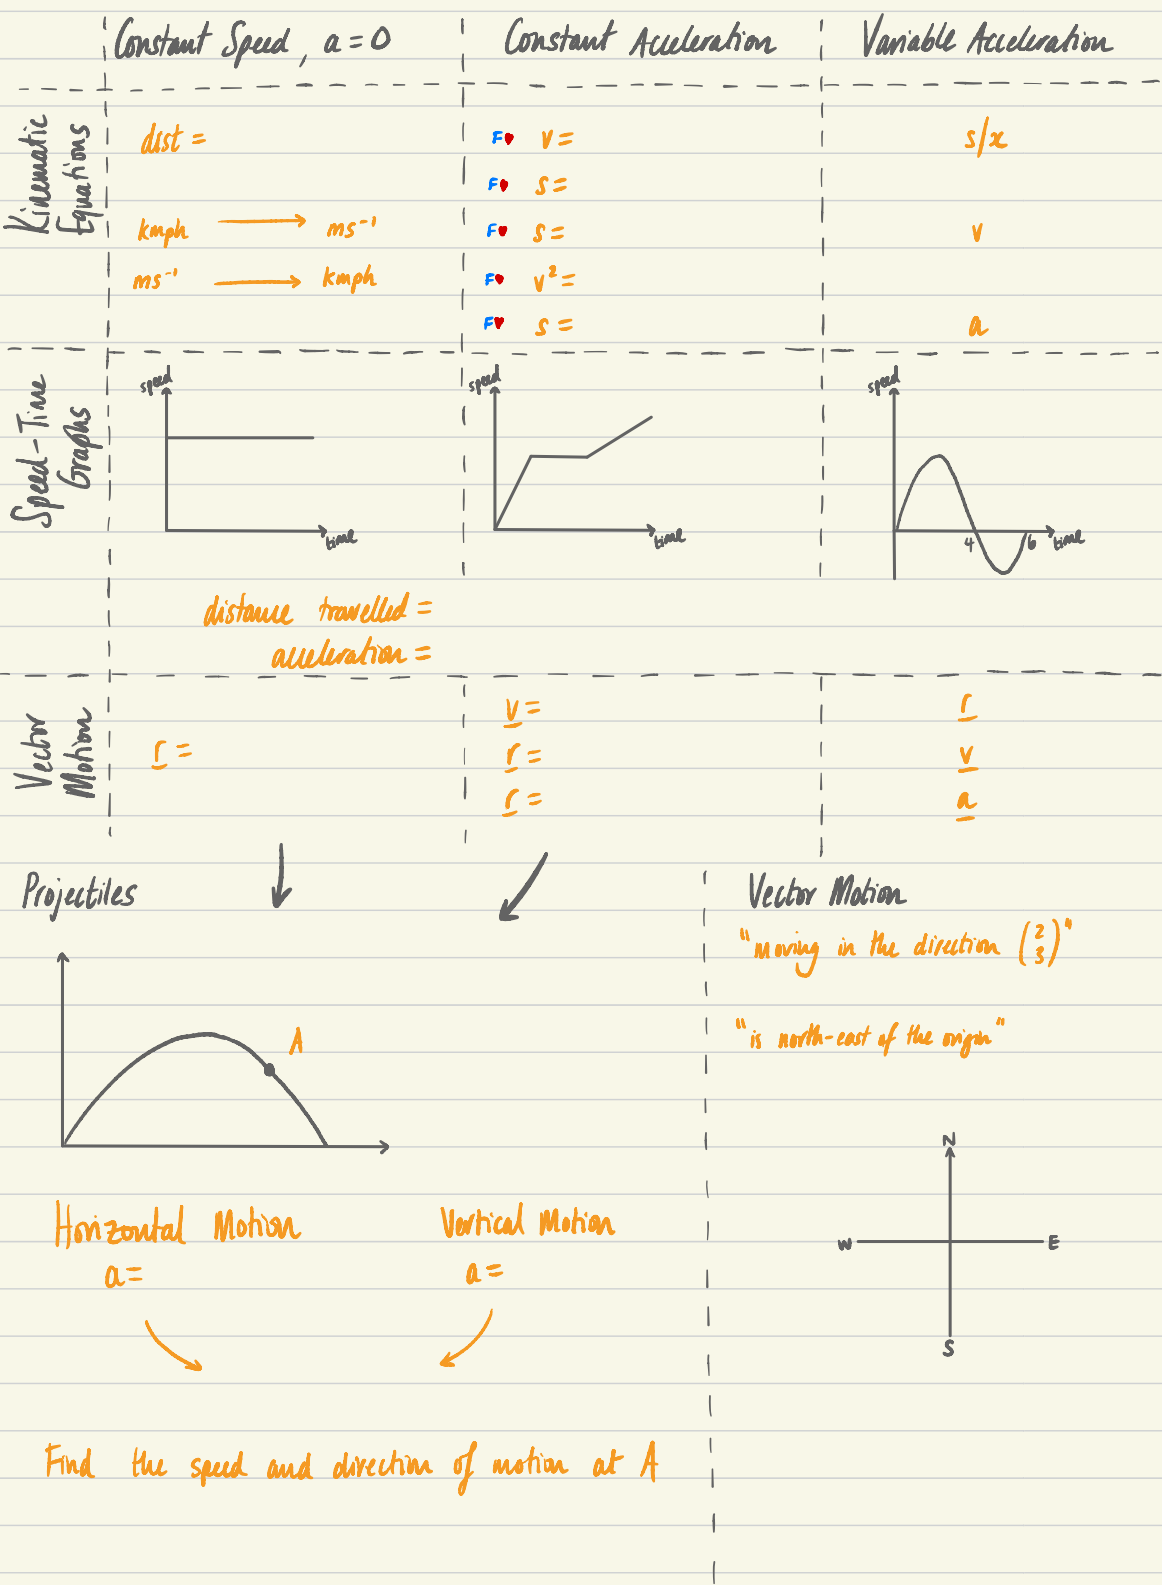 Constant Speed, a = 0
Constant Acceleration
Variable Acceleration
Kinematic
Equations
dist =
kmph → ms⁻¹
ms⁻¹ → kmph
F♥ v =
F♥ s =
F♥ s =
F♥ v² =
F♥ s =
s/x
v
a
Speed-Time
Graphs
speed
time
speed
time
speed
4
6
time
distance travelled =
acceleration =
Vector
Motion
r =
v =
r =
r =
r
v
a
Projectiles
A
Horizontal Motion
a =
Vertical Motion
a =
Find the speed and direction of motion at A
Vector Motion
"moving in the direction (2 3)"
"is north-east of the origin"
N
W
E
S